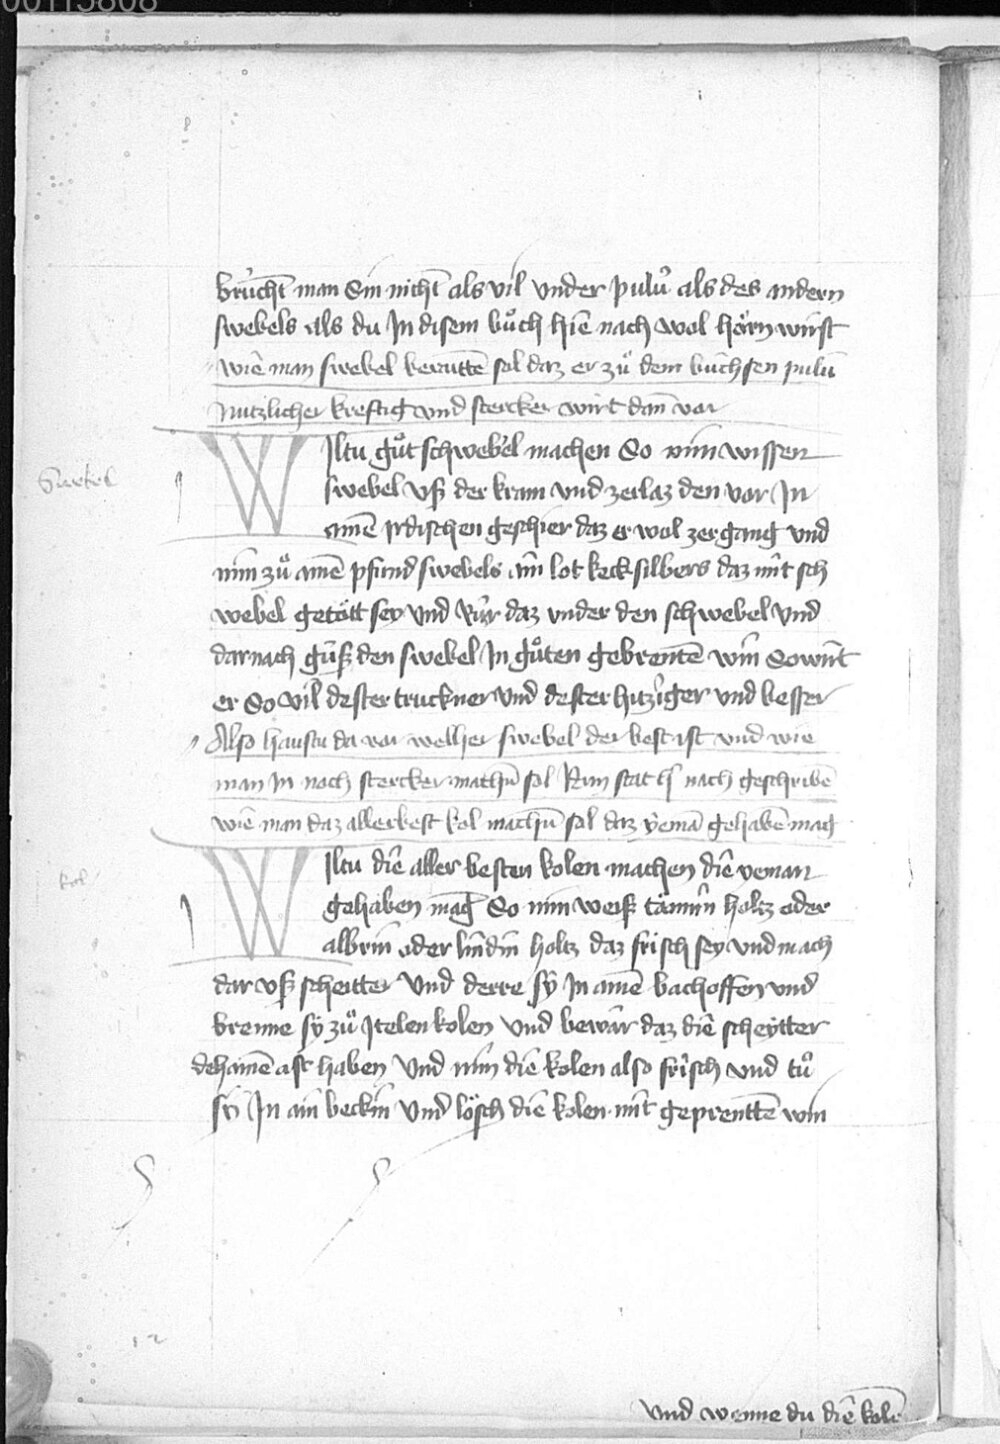 00115808
brúcht man Sin nicht als vil vnder pulú als des andern
swebels als du In disem bůch hie nach wol hörn wirst
wie man swebel beraitten sol daz er zů dem búchsen pulú
nutzlicher kreftig vnd stercker wirt dan vor
Swebel
WIltu gůt schwebel machen So nim wissen
swebel vß der kram vnd zerlaz den vor In
ainē Irdischen geschier daz er wol zergang vnd
nim zů ainē pfund swebels ain lot kecksilbers daz mit sch
webel getött sey vnd Rúr daz vnder den schwebel vnd
darnach gúß den swebel In gůten gebrentē win So wirt
er So vil dester truckner vnd dester hitziger vnd besser
Also haustu da vor welher swebel der best ist vnd wie
man In noch stercker machē sol Nun stat hie nach geschribē
wie man daz allerbest kol machē sol daz yemā gehabē mag
kol
WIltu die aller besten kolen machen die yeman
gehaben mag So nim weiß tännin holtz oder
albrin oder lindin holtz daz frisch sey vnd mach
dar vß scheitter vnd derre sy In ainē bachoffen vnd
brenne sy zů Itelen kolen vnd bewar daz die scheytter
dehainē ast haben vnd nim die kolen also frisch vnd tů
si In ain beckin vnd lösch die kolen mit geprenttē win
vnd wenne du die kolē